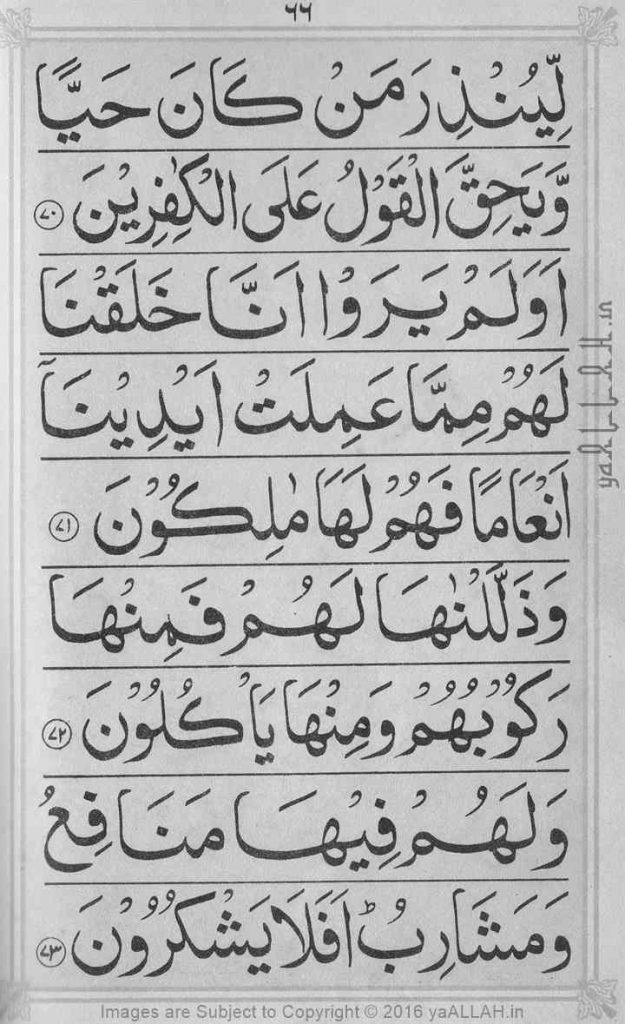 ٦٦
لِّيُنْذِرَ مَنْ كَانَ حَيًّا
وَّيَحِقَّ الْقَوْلُ عَلَى الْكٰفِرِيْنَ ﴿٧٠﴾
اَوَلَمْ يَرَوْا اَنَّا خَلَقْنَا
لَهُمْ مِمَّا عَمِلَتْ اَيْدِيْنَاۤ
اَنْعَامًا فَهُمْ لَهَا مٰلِكُوْنَ ﴿٧١﴾
وَذَلَّلْنٰهَا لَهُمْ فَمِنْهَا
رَكُوْبُهُمْ وَمِنْهَا يَاْكُلُوْنَ ﴿٧٢﴾
وَلَهُمْ فِيْهَا مَنَافِعُ
وَمَشَارِبُ ؕ اَفَلَا يَشْكُرُوْنَ ﴿٧٣﴾
yaALLAH.in
Images are Subject to Copyright © 2016 yaALLAH.in